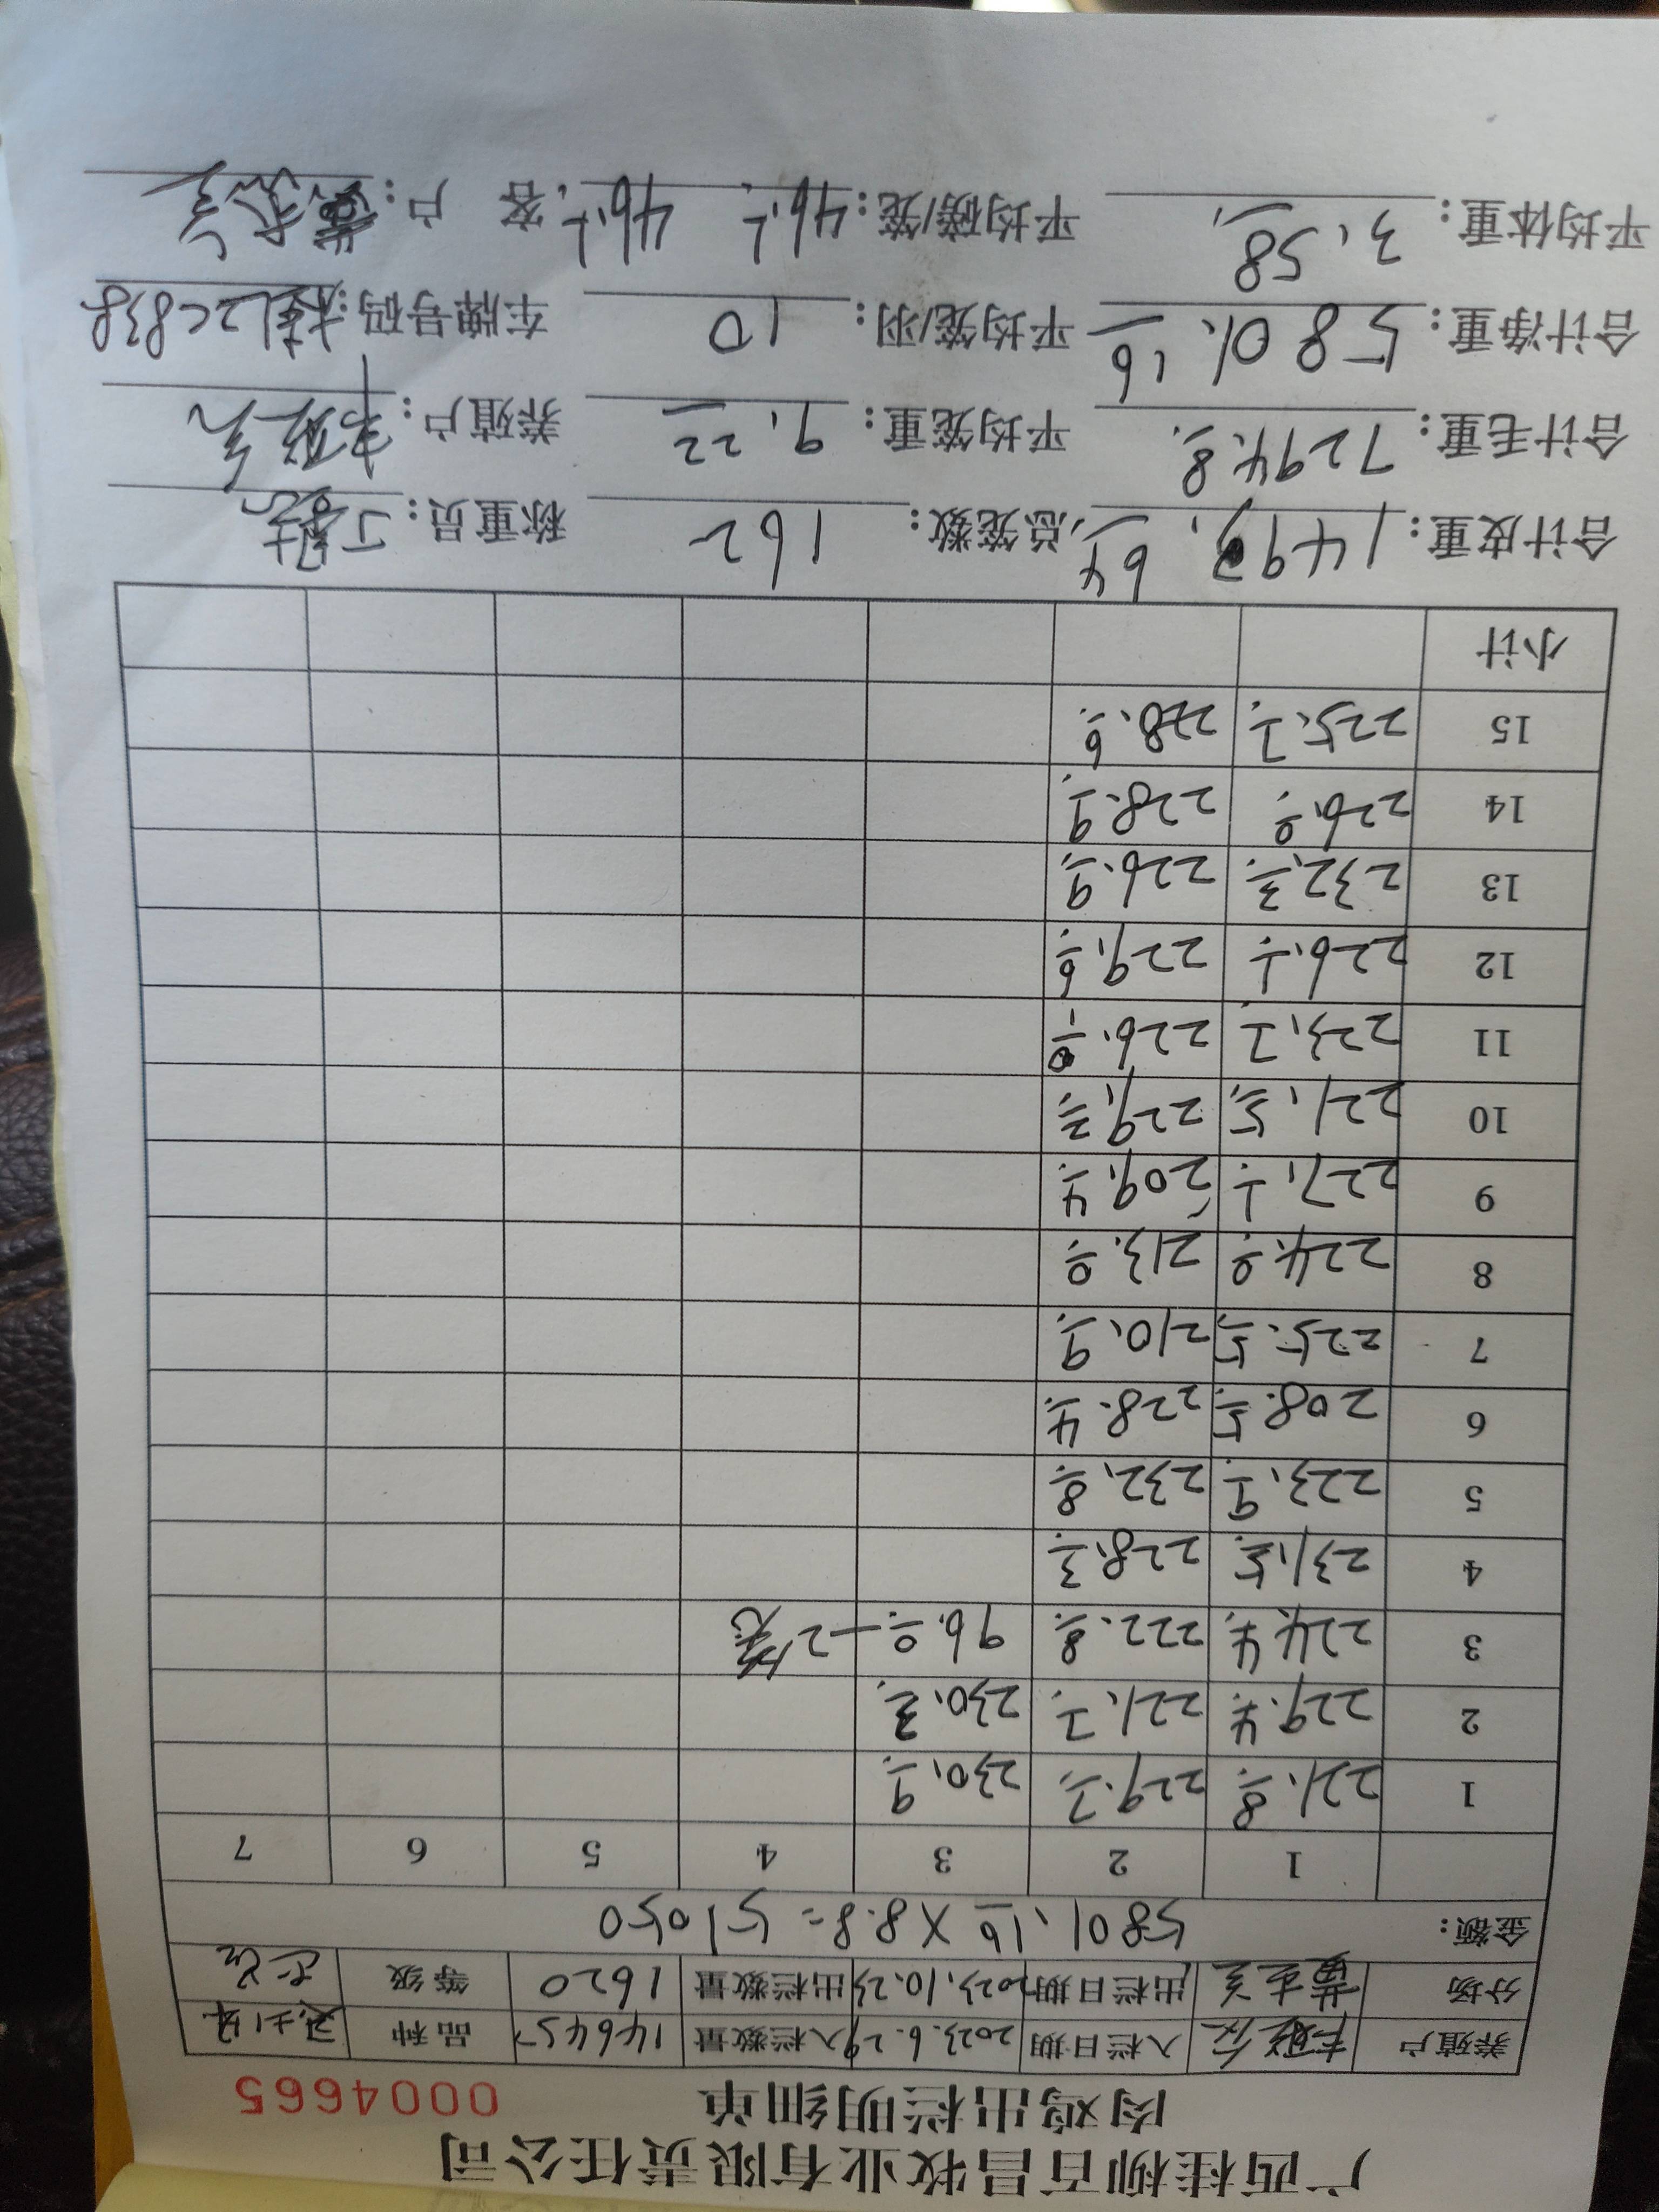 广西桂柳百昌牧业有限责任公司
肉鸡出栏明细单 0004665
养殖户 入栏日期 2023.6.29 入栏数量 14645 品种
分场 出栏日期 2023.10.23 出栏数量 1620 等级
金额: 5801.16 X 8.8 = 51050
1 2 3 4 5 6 7
1 221.8 229.7 230.9
2 229.4 221.7 230.3
3 224.4 222.8 96.0 — 2笼
4 231.5 228.3
5 223.9 232.8
6 208.5 228.4
7 225.5 210.9
8 224.0 213.0
9 227.1 209.4
10 221.5 229.2
11 223.7 226.0
12 226.1 229.6
13 232.3 226.9
14 226.0 228.9
15 225.7 228.6
小计
合计皮重: 1493.64 总笼数: 162 称重员:
合计毛重: 7294.8 平均笼重: 9.22 养殖户:
合计净重: 5801.16 平均笼/羽: 10 车牌号码: 桂L2C838
平均体重: 3.58 平均磅/笼: 46.1 46.1 客 户: